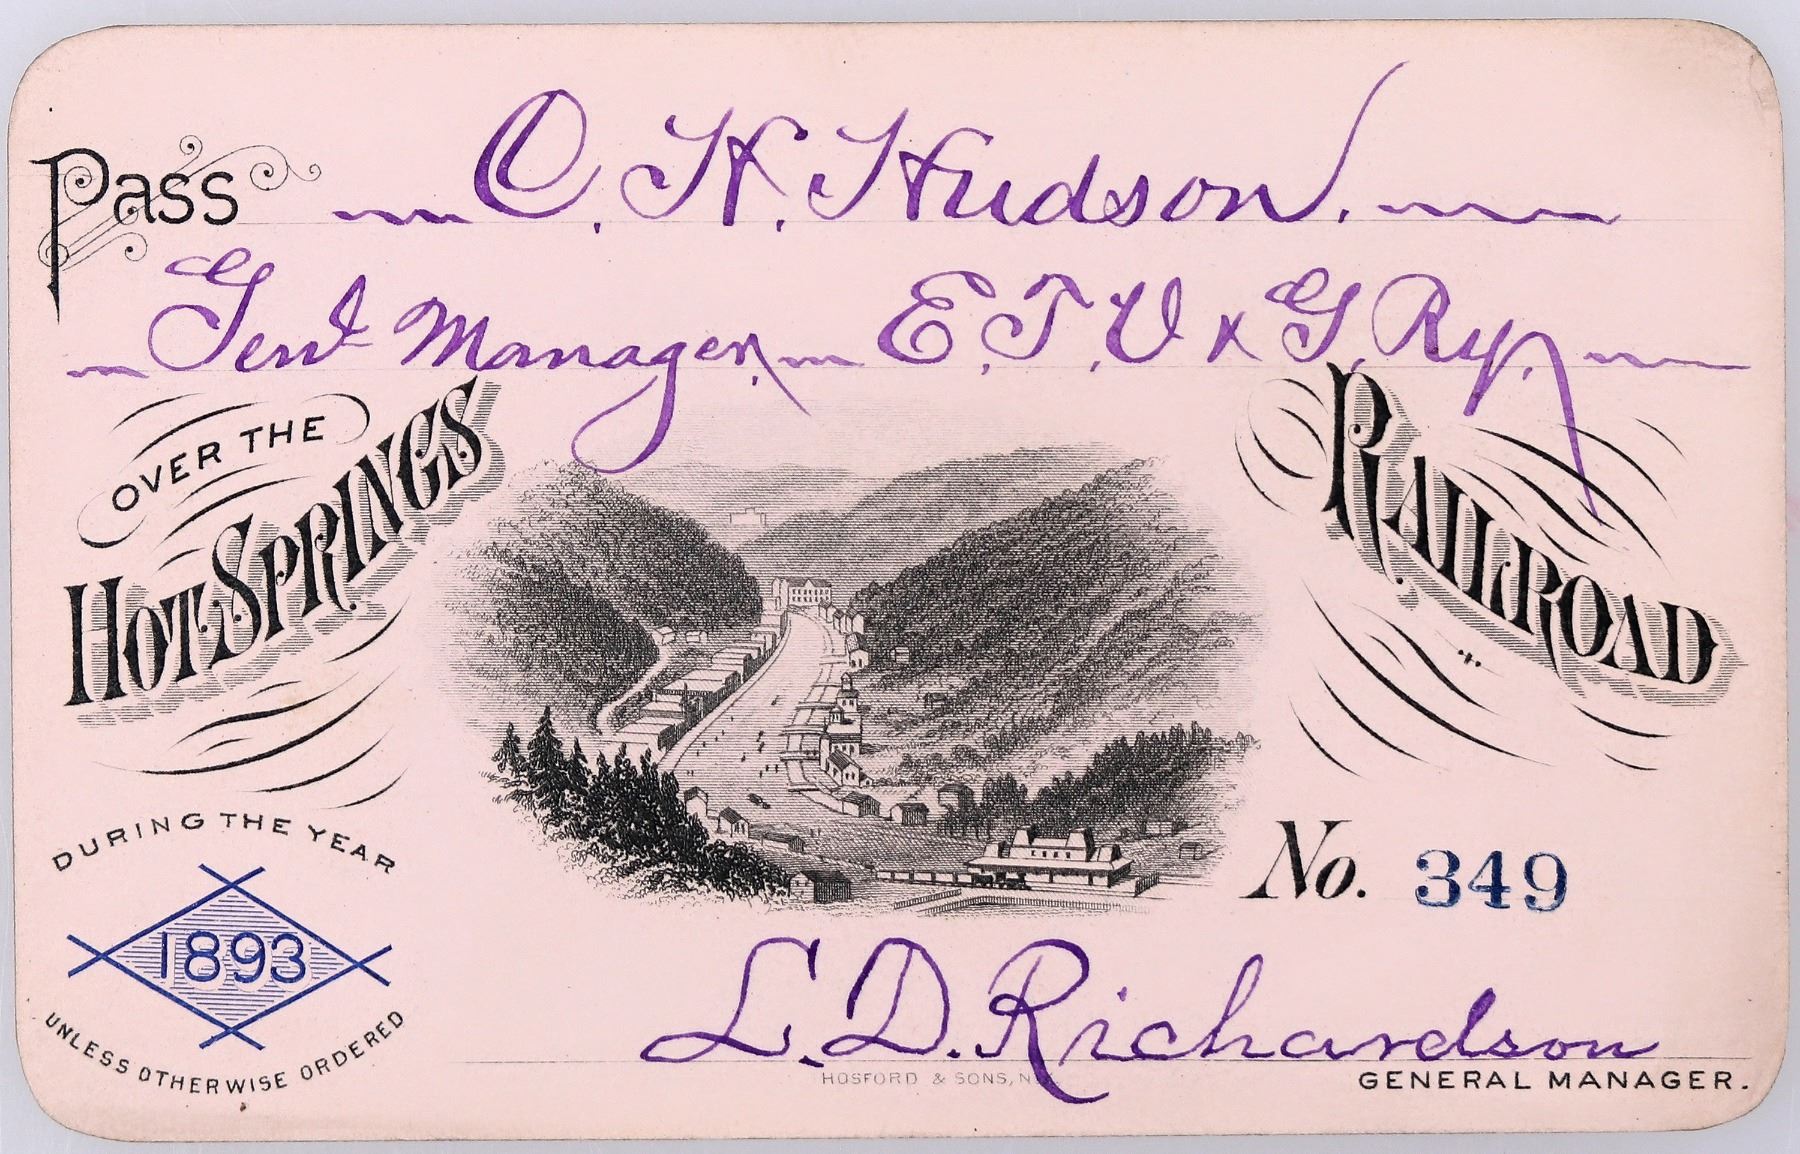 Pass C. H. Hudson.
Genl Manager, E. T. V & G. Ry.
OVER THE
HOT SPRINGS RAILROAD
DURING THE YEAR
1893
UNLESS OTHERWISE ORDERED
No. 349
L. D. Richardson
HOSFORD & SONS, N.Y.
GENERAL MANAGER.